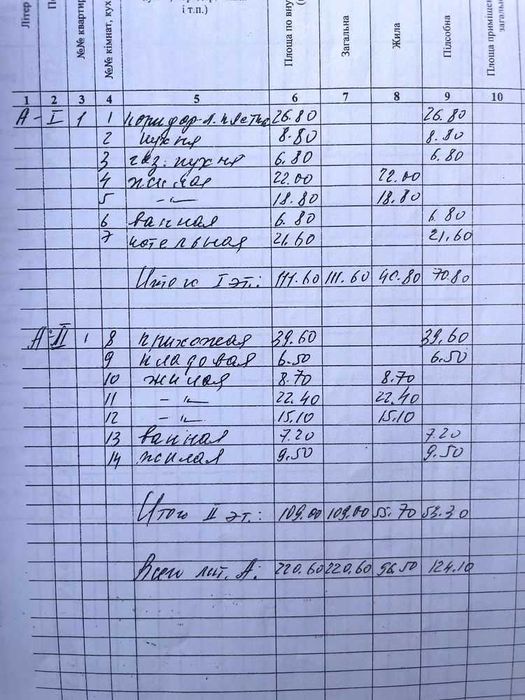 Літер
№№ квартир
№№ кімнат, кух
і т.п.)
Площа по вну
Загальна
Жила
Підсобна
Площа приміщен
загальн
1 2 3 4 5 6 7 8 9 10
А - I 1 1 коридор-л. клетка 26.80 26.80
2 кухня 8.80 8.80
3 газ. кухня 6.80 6.80
4 жилая 22.00 22.00
5 -"- 18.80 18.80
6 ванная 6.80 6.80
7 котельная 21.60 21.60
Итого I эт.: 111.60 111.60 40.80 70.80
А II 1 8 прихожая 39.60 39.60
9 кладовая 6.50 6.50
10 жилая 8.70 8.70
11 -"- 22.40 22.40
12 -"- 15.10 15.10
13 ванная 7.20 7.20
14 жилая 9.50 9.50
Итого II эт.: 109.00 109.00 55.70 53.30
Всего лит. А: 220.60 220.60 96.50 124.10